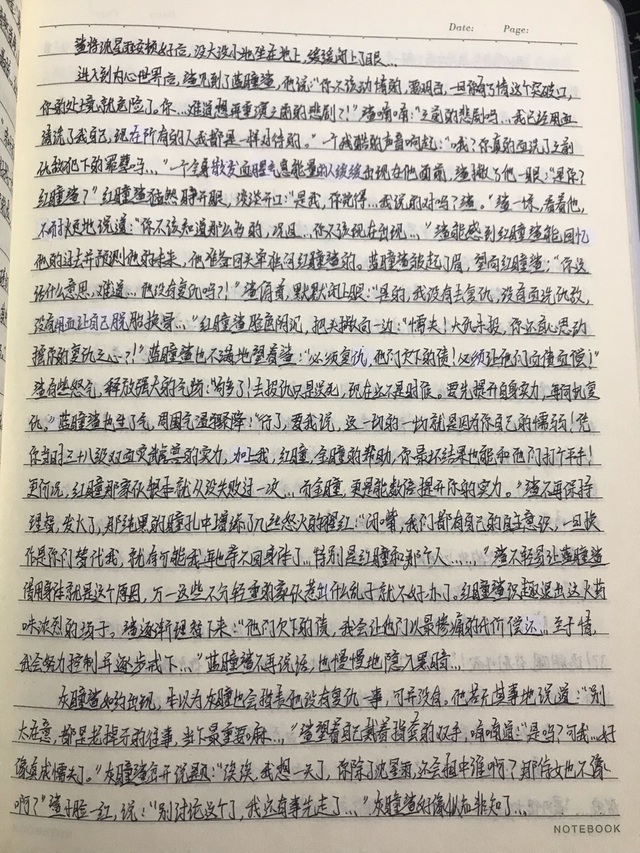 Date: Page:
渣将沈星雨安顿好后，没大没小地坐在地上，缓缓闭上了眼…
进入到内心世界后，渣见到了蓝瞳渣，他说："你不该动情的，要明白，一旦有了情这个突破口，
你的处境就危险了，你…难道想再重演之前的悲剧？！"渣喃喃："之前的悲剧吗…我已经用血
清洗了我自己，现在所有的人我都是一样对待的。"一个残酷的声音响起："哦？你真的血洗了之前
仇敌犯下的罪孽吗…"一个全身散发血腥气息能量的人缓缓出现在他面前，渣撇了他一眼："是你？
红瞳渣？"红瞳渣猛然睁开眼，淡淡开口："是我，你觉得…我说的对吗？渣。"渣一怔，看着他，
不耐烦地说道："你不该知道那么多的，况且…你不该现在出现…"渣能感到红瞳渣能回忆
他的过去并预测他的未来，他准备回头牵制红瞳渣的。蓝瞳渣皱起了眉，望向红瞳渣："你这
话什么意思，难道…他没有复仇吗？！"渣俯首，默默闭上眼："是的，我没有去复仇，没有血洗仇敌，
没有用血让自己脱胎换骨…"红瞳渣脸色阴沉，把头撇向一边："懦夫！大仇未报，你还有心思动
摇你的复仇之心？！"蓝瞳渣也不满地望着渣："必须复仇，他们欠下的债！必须让他们血债血偿！"
渣有些怒气，释放强大的气场："够了！去报仇只是送死，现在还不是时候。要先提升自身实力，等伺机复
仇。"蓝瞳渣也生了气，周围气温骤降："行了，要我说，这一切的一切就是因为你自己的懦弱！凭
你当时三十八级双血实兽的实力，加上我，红瞳，金瞳的帮助，你最坏结果也能和他们打个平手！
更何况，红瞳那家伙恨手就从没失败过一次…而金瞳，更是能数倍提升你的实力。"渣不再保持
理智，发火了，那纯黑的瞳孔中增添了几丝怒火的猩红："闭嘴，我们都有自己的自主意识，一旦换
作是你们替代我，就有可能我再也夺不回身体了…特别是红瞳和那个人……"渣不轻易让蓝瞳渣
借用身体就是这个原因，万一这些不分轻重的家伙惹出什么乱子就不好办了。红瞳渣识趣退出这火药
味浓烈的场子。渣逐渐理智下来："他们欠下的债，我会让他们以最惨痛的代价偿还…至于情，
我会努力控制并逐步戒下…"蓝瞳渣不再说话，也慢慢地隐入黑暗…
灰瞳渣如约出现，本以为灰瞳也会指责他没有复仇一事，可并没有。他若无其事地说道："别
太在意，都是老掉牙的往事，当下最重要嘛…"渣望着自己戴着指套的双手，喃喃道："是吗？可我…好
像真成懦夫了。"灰瞳渣岔开说题："诶诶，我想一夫了，你除了沈星雨，还会相中谁啊？那俗女也不像
啊？"渣小脸一红，说："别讨论这个了，我还有事先走了…"灰瞳渣好像似知非知了…
NOTEBOOK